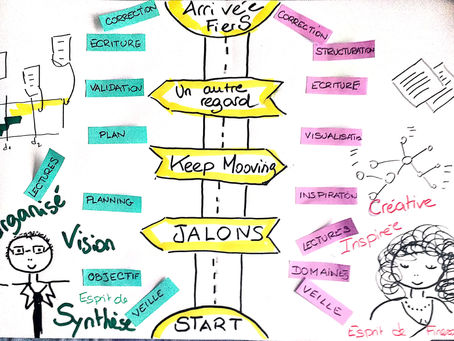 Arrivée
Fiers
CORRECTION
ECRITURE
VALIDATION
PLAN
LECTURES
PLANNING
OBJECTIF
VEILLE
Organisé
Vision
Esprit de
Synthèse
d2
Un autre
regard
Keep Mooving
JALONS
START
CORRECTION
STRUCTURATION
ECRITURE
INSPIRATION
LECTURES
DOMAINES
VEILLE
Créative
Inspirée
Esprit de